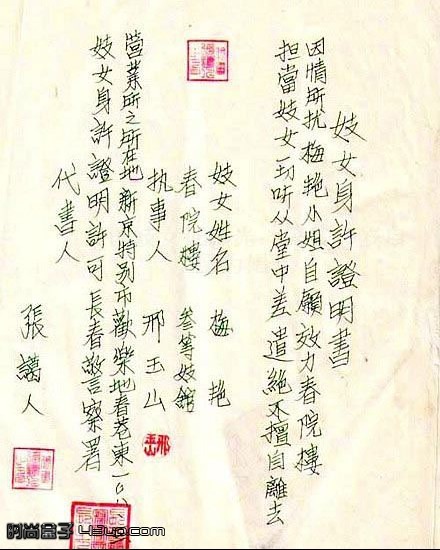 妓女身許證明書
因情所扰梅艳小姐自願效力春院樓
担當妓女一切听从堂中差遣絶不擅自離去
妓女姓名 梅 艳
春院樓 叁等妓舘
执事人 邢玉山
營業所之所在地新京特别市歡樂地春巷東一〇
妓女身許證明許可長春警察署
代書人 張 人
时尚盒子